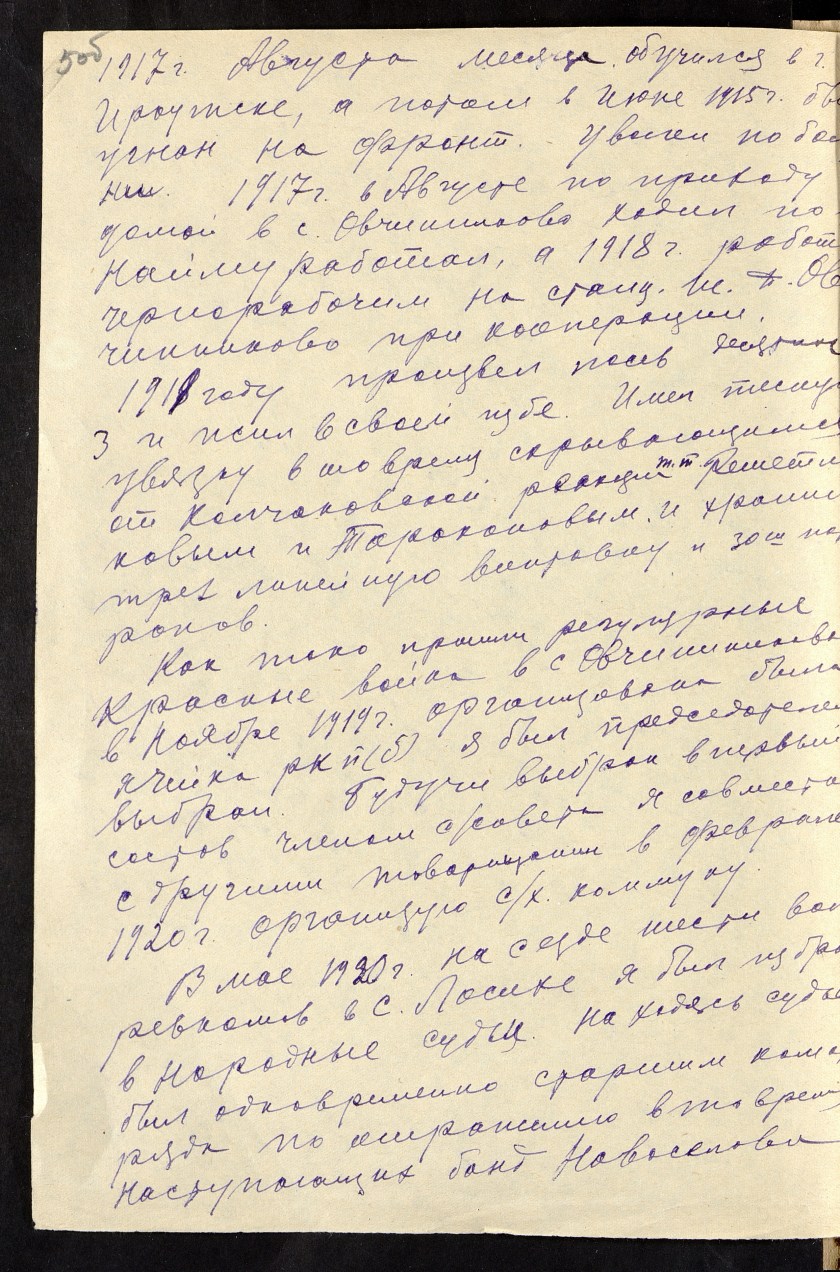 50б
1917г. Августа месяца обучился в г.
Ироутске, а потом в Июне 1915г. бы
угнан на фронт. Уволен по бол
нии. 1917г. в Августе по приходу
домой в с. Овчинниково ходил по
найму работал, а 1918г. работ
чернорабочим на станц. ж. д. Ов
чинниково при кооперации.
1918 году произвел посев десятин
3 и жил в своей избе. Имел тесную
увязку в то время скрывающимися
от Колчаковской реакции т.т. Решетни
ковым и Таракановым. и хранил
трех линейную винтовку и 30ш пат
ронов.
Как тако пришли регулярные
Красные война в с Овчинниково
в Ноябре 1919г. организована была
ячейка РКП(б) я был председателем
выбран. Будучи выбран в первый
состав членом с/совета я совместно
с другими товарищами в феврале
1920г. организую с/х. коммуну.
В мае 1920г. на сезде шести вол
ревкомов в с. Лосихе я был избра
в Народные судьи. Находясь судье
был одновременно старшим кома
ряда по отражению в то время
наступающих банд Новоселова